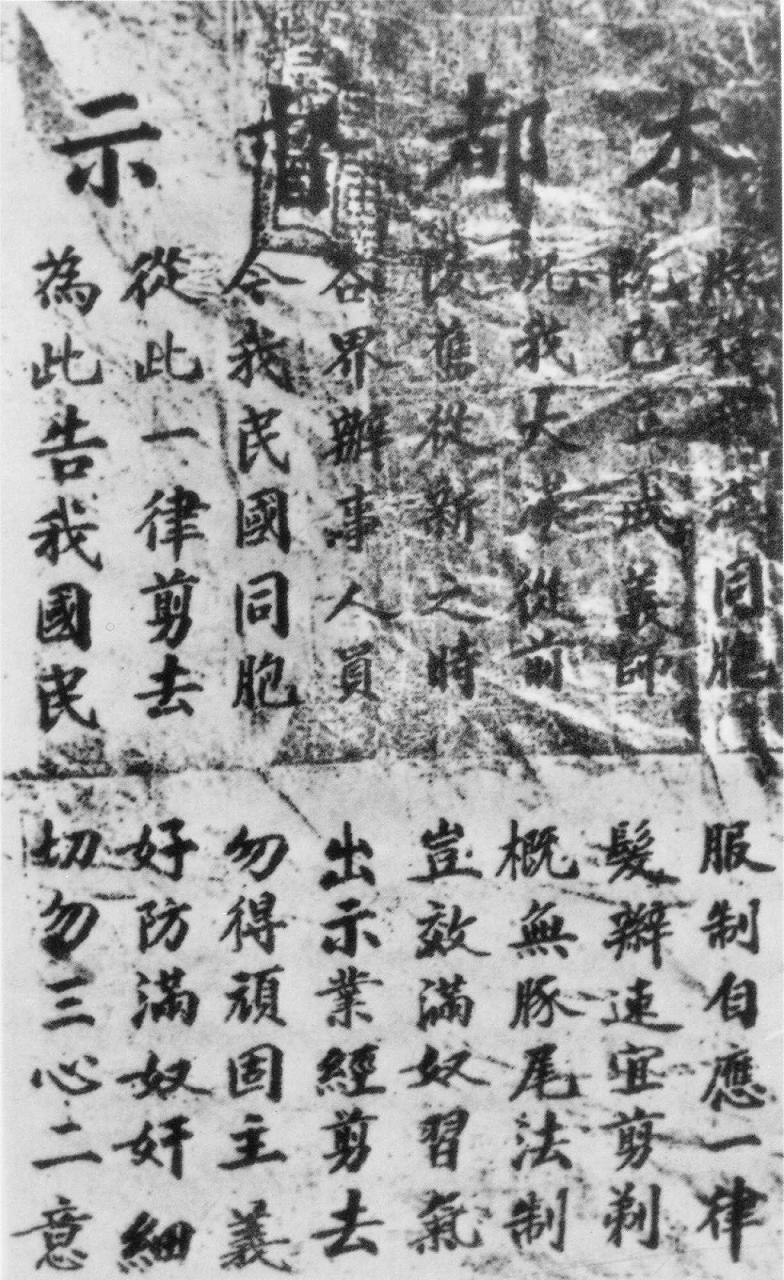 本都督示
漢同胞 服制自應一律
義師 髮辮速宜剪剃
況我大 從前 概無豚尾法制
舊從新之時 豈效滿奴習氣
各界辦事人員 出示業經剪去
令我民國同胞 勿得頑固主義
從此一律剪去 好防滿奴奸細
為此告我國民 切勿三心二意